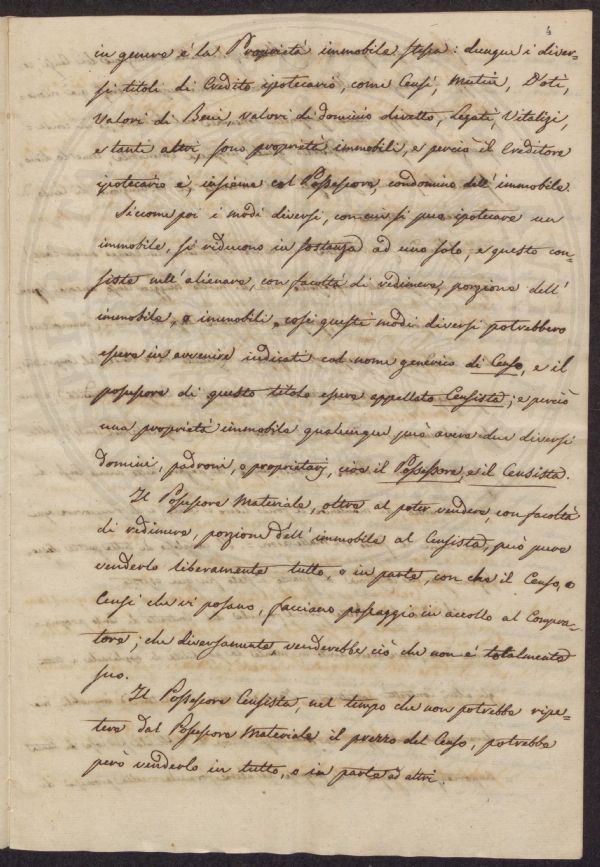 4
in genere è la Proprietà immobile stessa: dunque i diver=
si titoli di Credito ipotecario, come Censi, Mutui, Doti,
Valori di Beni, valori di dominio diretto, Legati, Vitalizi,
e tanti altri, sono proprietà immobili, e perciò il Creditore
ipotecario è, insieme col Possessore, condomino dell'immobile.
Siccome poi i modi diversi, con cui si può ipotecare un
immobile, si riducono in sostanza ad uno solo, e questo con=
siste nell'alienare, con facoltà di redimere, porzione dell'
immobile, o immobili, così questi modi diversi potrebbero
essere in avvenire indicati col nome generico di Censo, e il
possessore di questo titolo essere appellato Censista; e perciò
una proprietà immobile qualunque può avere due diversi
domini, padroni, o proprietarj, cioè il Possessore, e il Censista.
Il Possessore Materiale, oltre al poter vendere, con facoltà
di redimere, porzione dell'immobile al Censista, può pure
venderlo liberamente tutto, o in parte, con che il Censo, o
Censi che vi posano, facciano passaggio in accollo al Compra=
tore; che diversamente, venderebbe ciò che non è totalmente
suo.
Il Possessore Censista, nel tempo che non potrebbe ripe=
tere dal Possessore Materiale il prezzo del Censo, potrebbe
però venderlo in tutto, o in parte ad altri.